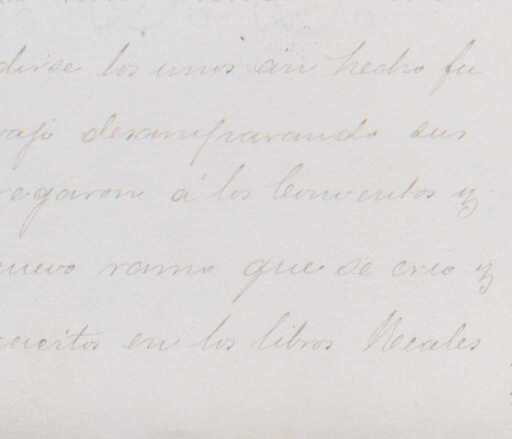 dirse los unos an hecho fu
vajo desamparando sus
regaron á los Conventos y
nuevo ramo que se creo y
en los libros Reales